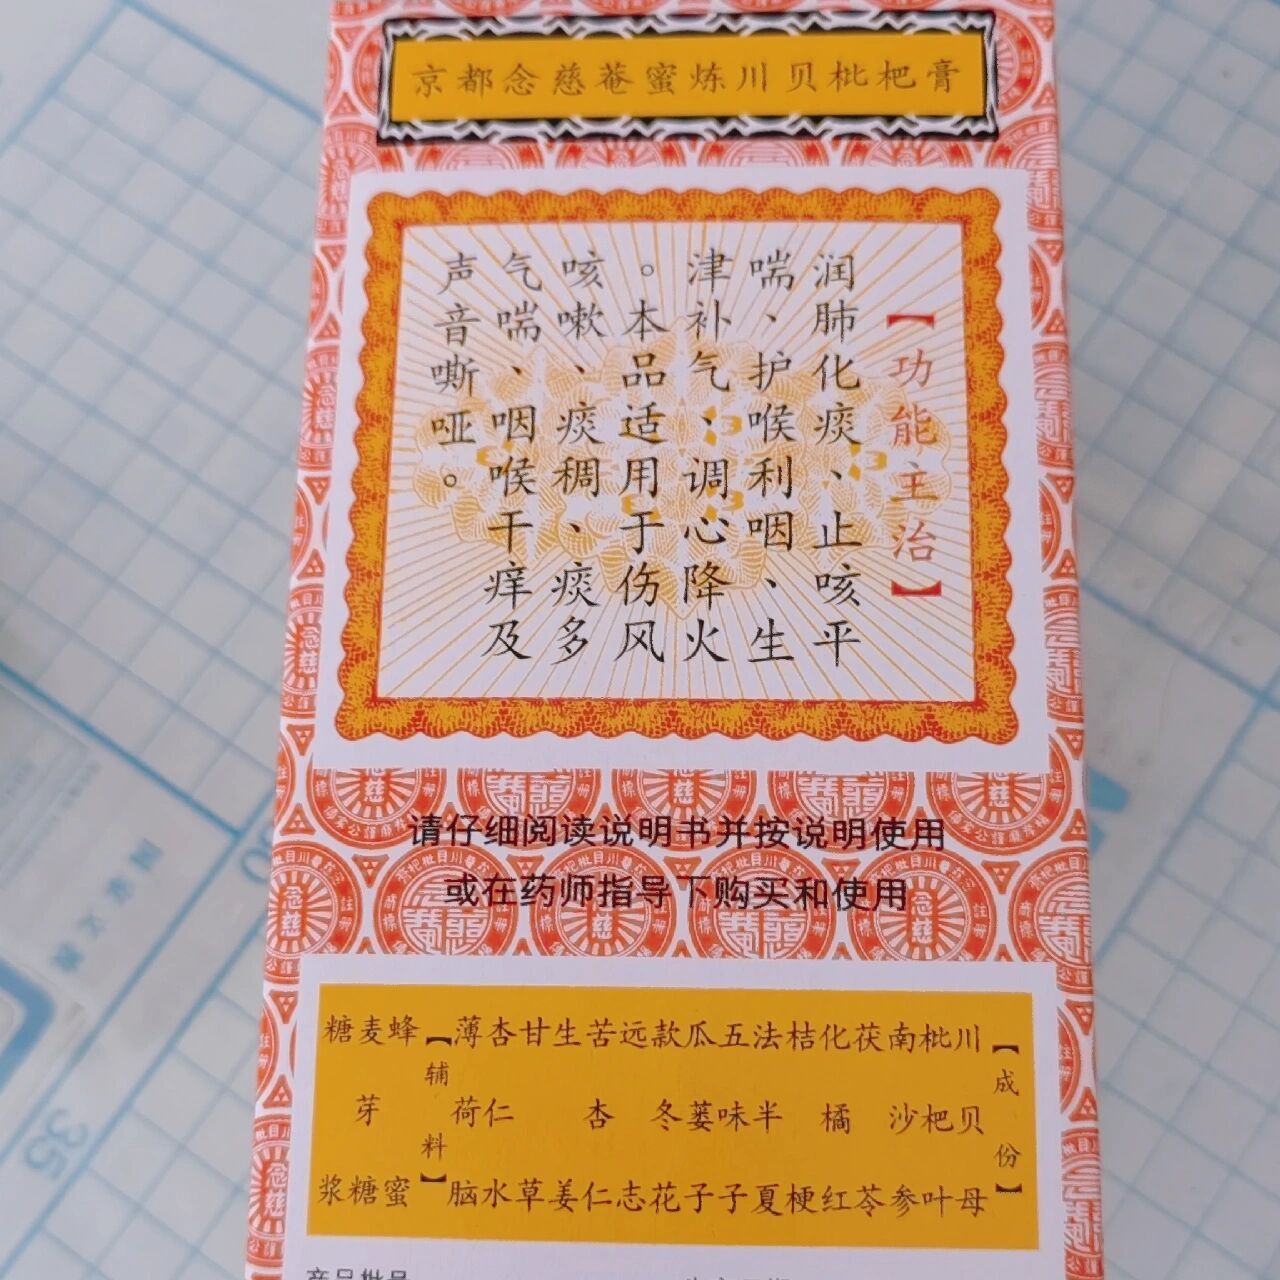 京都念慈菴蜜炼川贝枇杷膏
【功能主治】
润肺化痰、止咳平
喘、护喉利咽、生
津补气、调心降火
。本品适用于伤风
咳嗽、痰稠、痰多
气喘、咽喉干痒及
声音嘶哑。
请仔细阅读说明书并按说明使用
或在药师指导下购买和使用
【成份】
川贝母
枇杷叶
南沙参
茯苓
化橘红
桔梗
法半夏
五味子
瓜蒌子
款冬花
远志
苦杏仁
生姜
甘草
杏仁水
薄荷脑
【辅料】
蜂蜜
麦芽糖
糖浆